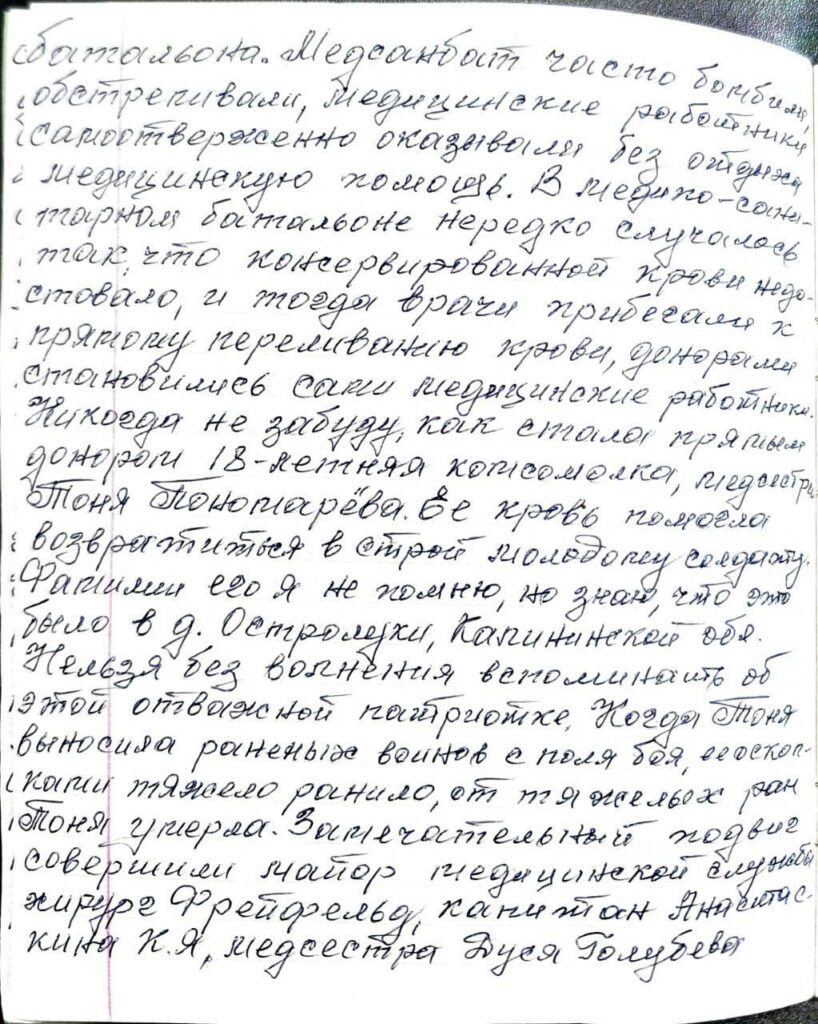 батальона. Медсанбат часто бомбили,
обстреливали, медицинские работники
самоотверженно оказывали без отдыха
медицинскую помощь. В медико-сани-
тарном батальоне нередко случалось
так, что консервированной крови недо-
ставало, и тогда врачи прибегали к
прямому переливанию крови, донорами
становились сами медицинские работники.
Никогда не забуду, как стала прямым
донором 18-летняя комсомолка, медсестра
Тоня Пономарёва. Её кровь помогла
возвратиться в строй молодому солдату.
Фамилии его я не помню, но знаю, что это
было в д. Остролуки, Калининской обл.
Нельзя без волнения вспоминать об
этой отважной патриотке. Когда Тоня
выносила раненых воинов с поля боя, ее оскол-
ками тяжело ранило, от тяжелых ран
Тоня умерла. Замечательный подвиг
совершили майор медицинской службы
хирург Фрейфельд, капитан Анастас-
кина К.Я, медсестра Дуся Голубева